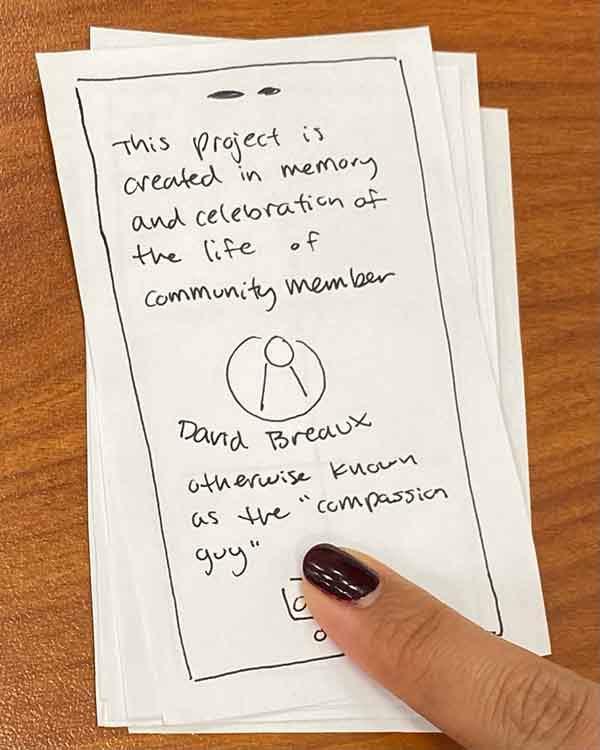 This project is
created in memory
and celebration of
the life of
community member
David Breaux
otherwise known
as the "compassion
guy"